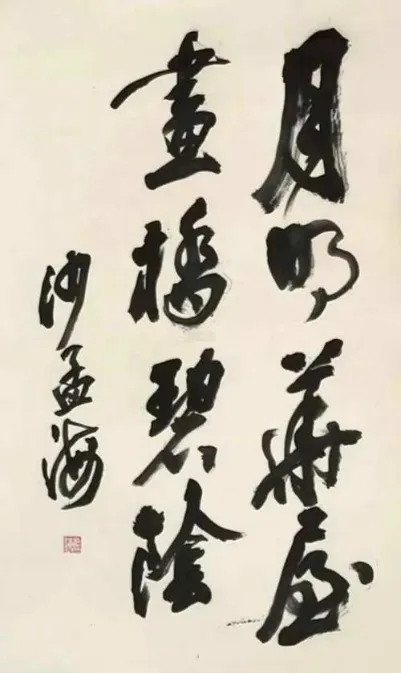 月明華屋
畫橋碧陰
沙孟海